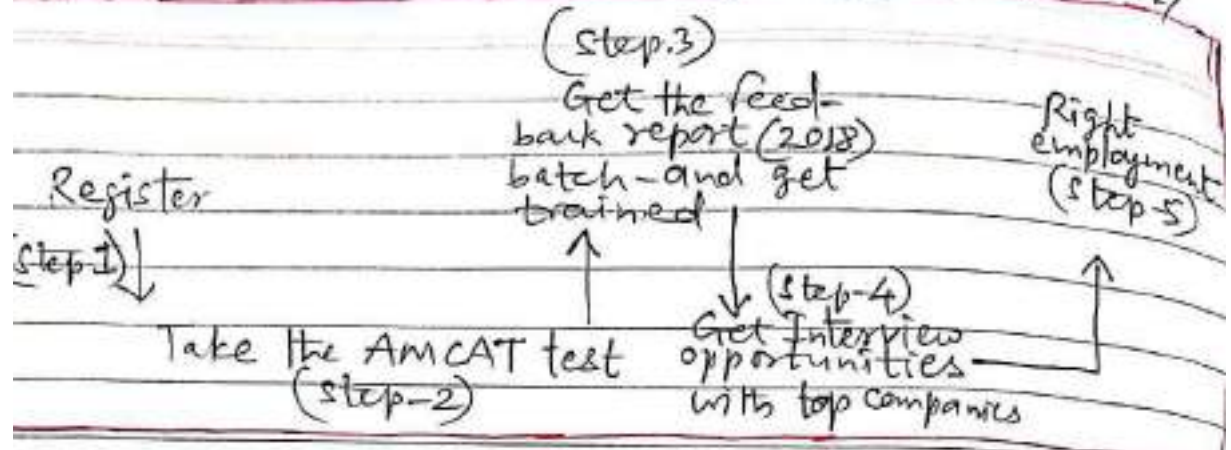 Register
(Step-1)
Take the AMCAT test
(Step-2)
(Step.3)
Get the feed-
back report (2018)
batch-and get
trained
(Step-4)
Get Interview
opportunities
with top companies
Right
employment
(Step-5)